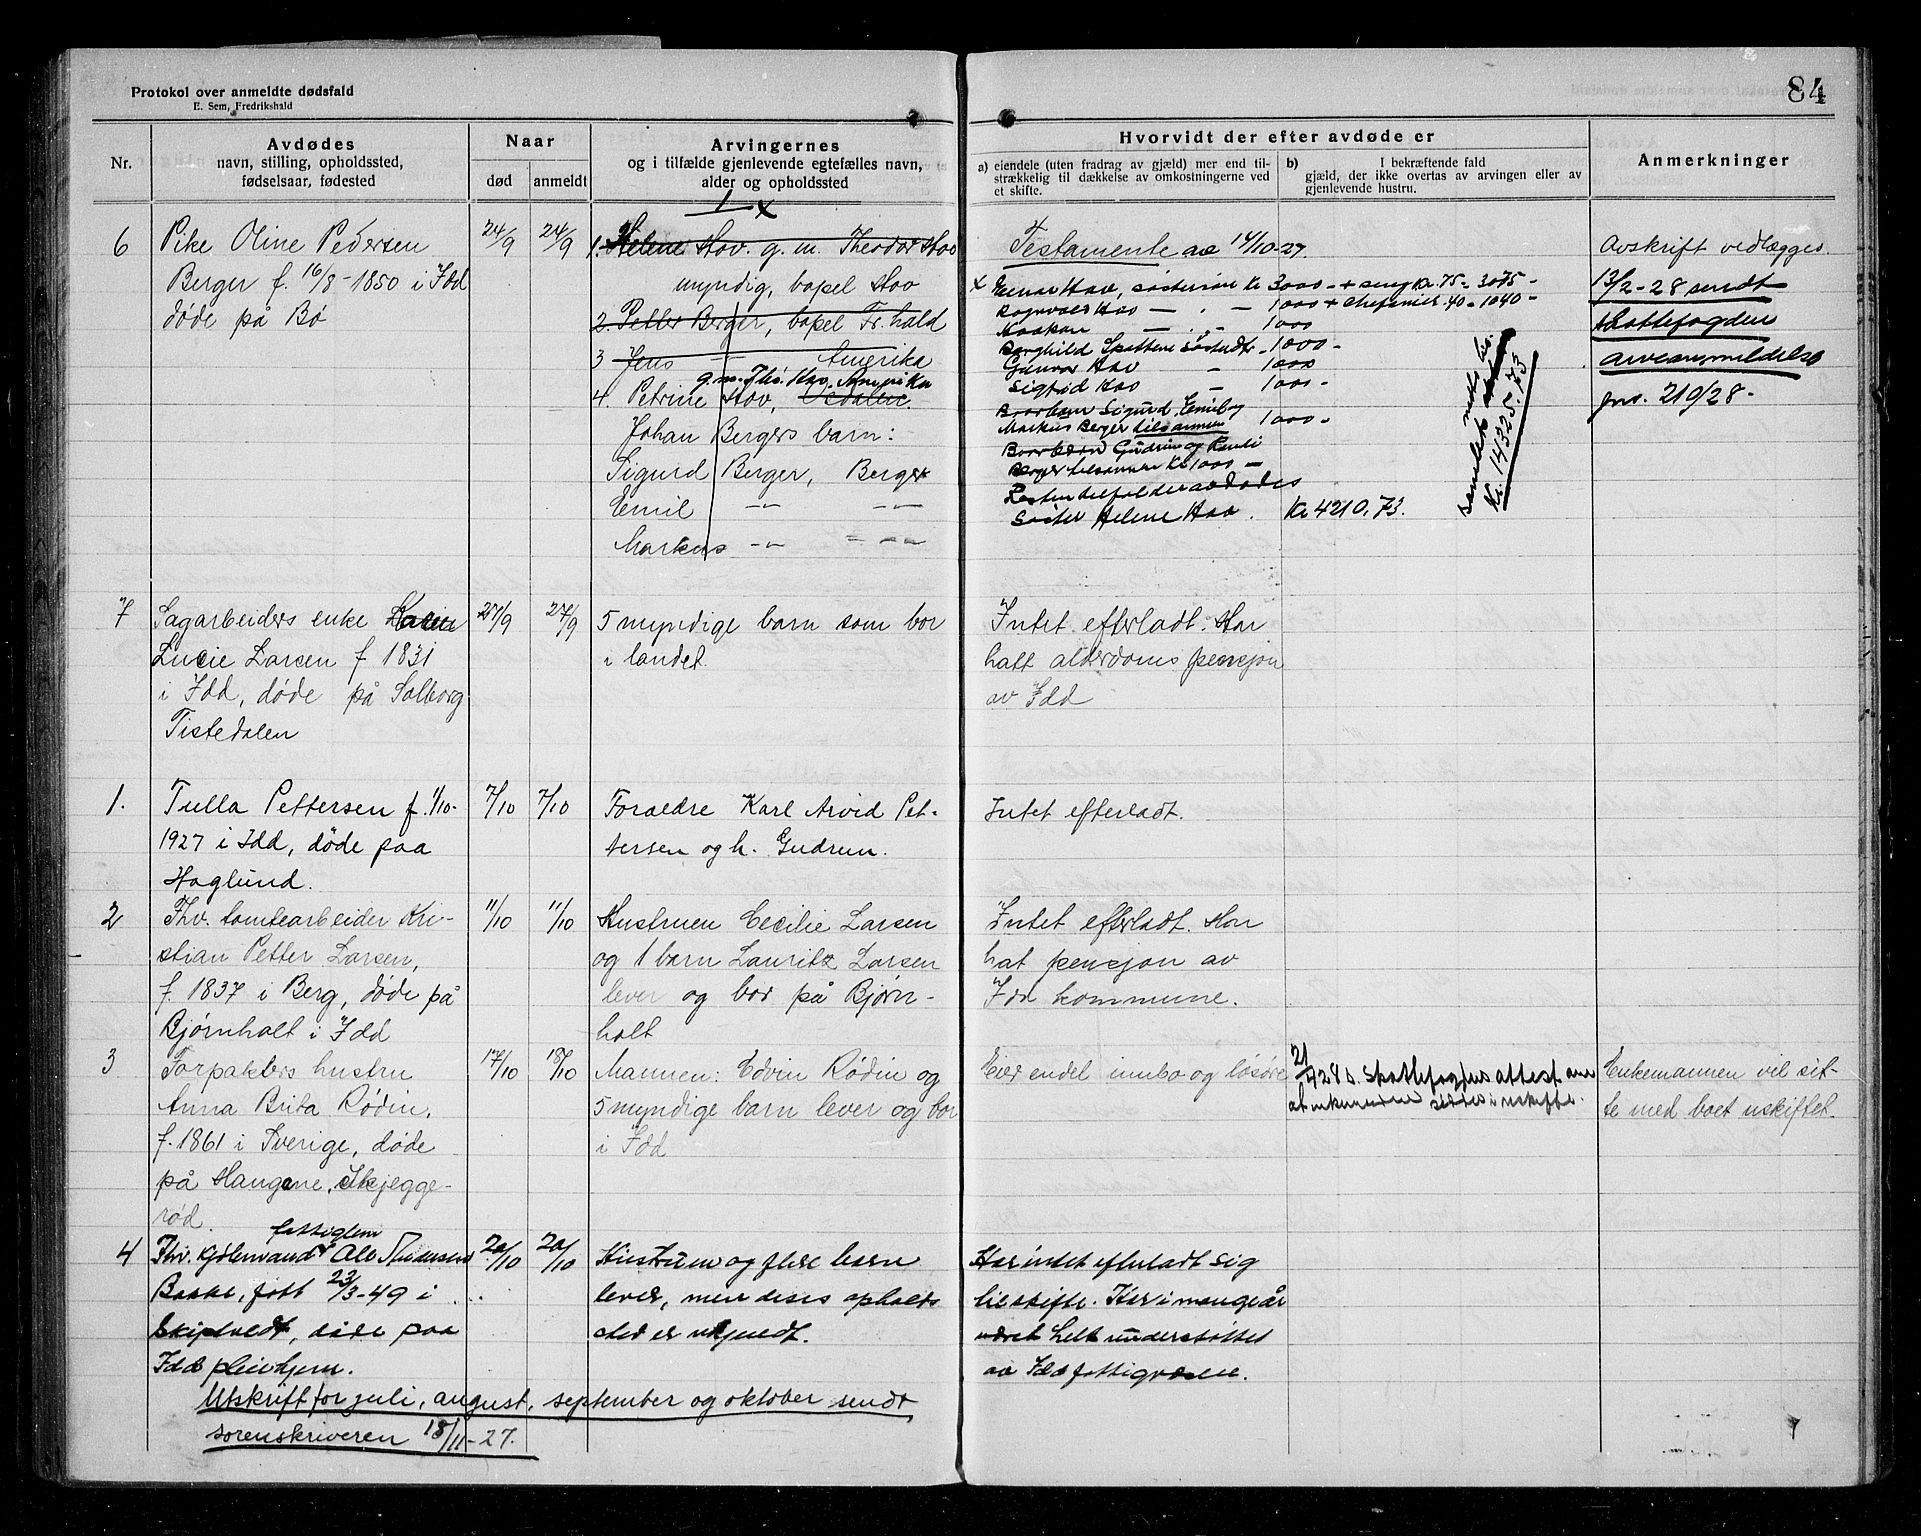 84
Protokol over anmeldte dødsfald
E. Sem, Fredrikshald
Nr.
Avdødes
navn, stilling, opholdssted,
fødselsaar, fødested
Naar
død
anmeldt
Arvingernes
og i tilfælde gjenlevende egtefælles navn,
alder og opholdssted
Hvorvidt der efter avdøde er
a) eiendele (uten fradrag av gjæld) mer end til-
strækkelig til dækkelse av omkostningerne ved
et skifte.
b) I bekræftende fald
gjæld, der ikke overtas av arvingen eller av
gjenlevende hustru.
Anmerkninger
6
Pike Oline Pedersen
Berger f. 16/8-1850 i Idd
døde på Bø
24/9
24/9
1 x
1. Helene Hov. g. m. Theodor Hov
myndig, bopel Hov
2. Petter Berger, bopel Fr.hald
3 Jens — Amerika
g.m. Ths. Hov. Amerika
4. Petrine Hov,
Johan Bergers barn:
Sigurd Berger, Berger
Emil -"- -"-
Markus -"- = -"-
Testamente av 14/10-27.
x Einar Hov, søstersøn Kr 3000 - + seng Kr. 75 - 3075 -
Ragnvald Hov — . - 1000 + chefonier. 40 - 1040 -
Haakon — . - 1000
Borghild Skotlene Søstadt - 1000 -
Gunvor Hov - 1000
Sigfrid Hov - 1000 -
Brorbarn Sigurd, Emil og
Markus Berger tilsammen 1000 -
Brorbarn Gudrun og Randi
Berger tilsammen Kr 1000 -
Resten tilfalder avdødes
søster Helene Hov. Kr 4210.73.
samlet netto
Kr. 14325.73
Avskrift vedlægges.
13/2-28 sendt
skattefogden
arveanmeldelse
jns. 219/28 -
7
Sagarbeiders enke
Lucie Larsen f 1831
i Idd, døde på Solborg
Tistedalen
27/9
27/9
5 myndige barn som bor
i landet.
Intet efterladt. Har
hatt alderdoms pensjon
av Idd
1.
Tulla Pettersen f. 1/10-
1927 i Idd, døde paa
Haglund.
7/10
7/10
Foraldre Karl Arvid Pet-
tersen og h. Gudrun.
Intet efterladt.
2
Fhv. tomtearbeider Kri-
stian Petter Larsen,
f. 1837 i Berg, døde på
Bjørnholt i Idd
11/10
11/10
Hustruen Cecilie Larsen
og 1 barn Lauritz Larsen
lever og bor på Bjørn-
holt
Intet efterladt. Har
hat pensjon av
Idd kommune.
3
Forpakters hustru
Anna Brita Rødin,
f. 1861 i Sverige, døde
på Haugene, Skjegge-
rød.
17/10
18/10
Mannen: Edvin Rødin og
5 myndige barn lever og bor
i Idd
Eier endel innbo og løsøre
21/4 28 s. skattefogdens attest om
at enkemannen sittes i uskifte.
Enkemannen vil sit-
te med boet uskiftet.
4
fattiglem
Fhv. kjølemand Ole Andersen
Baske, født 23/3-49 i
Skiptvedt, døde paa
Idd pleiehjem.
20/10
20/10
Hustrum og flere barn
lever, men deres opholds
sted er ukjendt.
Har intet efterladt sig
til skifte. Har i mange år
været helt understøttet
av Idd fattigvæsen.
Utskrift for juli, august, september og oktober sendt
sorenskriveren 18/11-27.